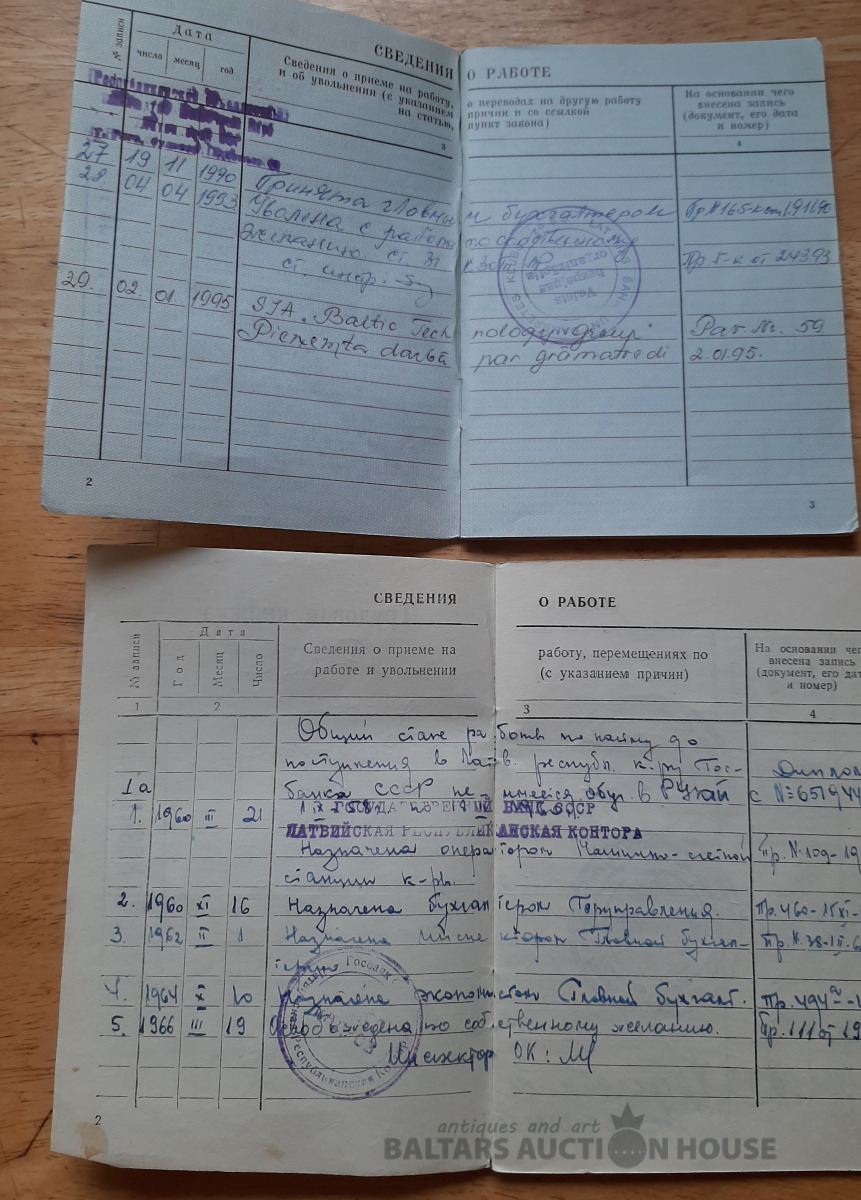 СВЕДЕНИЯ О РАБОТЕ
№ записи
Дата
число месяц год
Сведения о приеме на работу, о переводах на другую работу
и об увольнении (с указанием причин и со ссылкой
на статью, пункт закона)
На основании чего
внесена запись
(документ, его дата
и номер)
3 4
27 19 11 1990 Принята главным бухгалтером Пр №165-к от 191190
28 04 04 1993 Уволена с работы по собственному
желанию ст. 31 КЗоТ Пр 5-к от 24393
ст. инсп.
29. 02. 01. 1995 SIA. Baltic Technology group Pav. Nr. 59
Pieņemta darbā par grāmatvedi 2.01.95.
2 3
СВЕДЕНИЯ О РАБОТЕ
№ записи
Дата
Год Месяц Число
Сведения о приеме на работу, перемещениях по
работе и увольнении (с указанием причин)
На основании чег
внесена запись
(документ, его дат
и номер)
1 2 3 4
Общий стаж работы по найму до
поступления в Латв. республ. к-ру Гос- Диплом
1а банка СССР не имеется обуч. в с №651944
1. 1960 III 21 ГОСУДАРСТВЕННЫЙ БАНК СССР
ЛАТВИЙСКАЯ РЕСПУБЛИКАНСКАЯ КОНТОРА
Назначена оператором Машинно-счетной Пр. №109-19
станции к-ры.
2. 1960 XI 16 Назначена бухгалтером Горуправления. Пр. 460-15XI-
3. 1962 II 1 Назначена Главной бухгал- Пр. №38-
терии
4. 1964 X 10 Назначена экономистом Главной бухгалт. Пр. 494а-
5. 1966 III 19 Освобождена по собственному желанию. Пр. 111 от 19
Инспектор ОК:
2
antiques and art
BALTARS AUCTION HOUSE